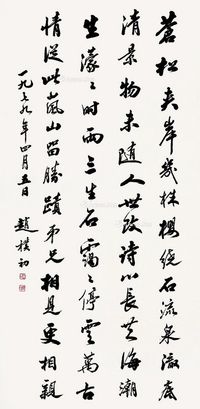 蒼松夾岸幾株櫻繞石流泉澈底
清景物未随人世改詩心長共海潮
生濛濛時雨三生石靄靄停雲萬古
情從此嵐山留勝蹟弟兄相見更相親
一九七九年四月五日
趙樸初